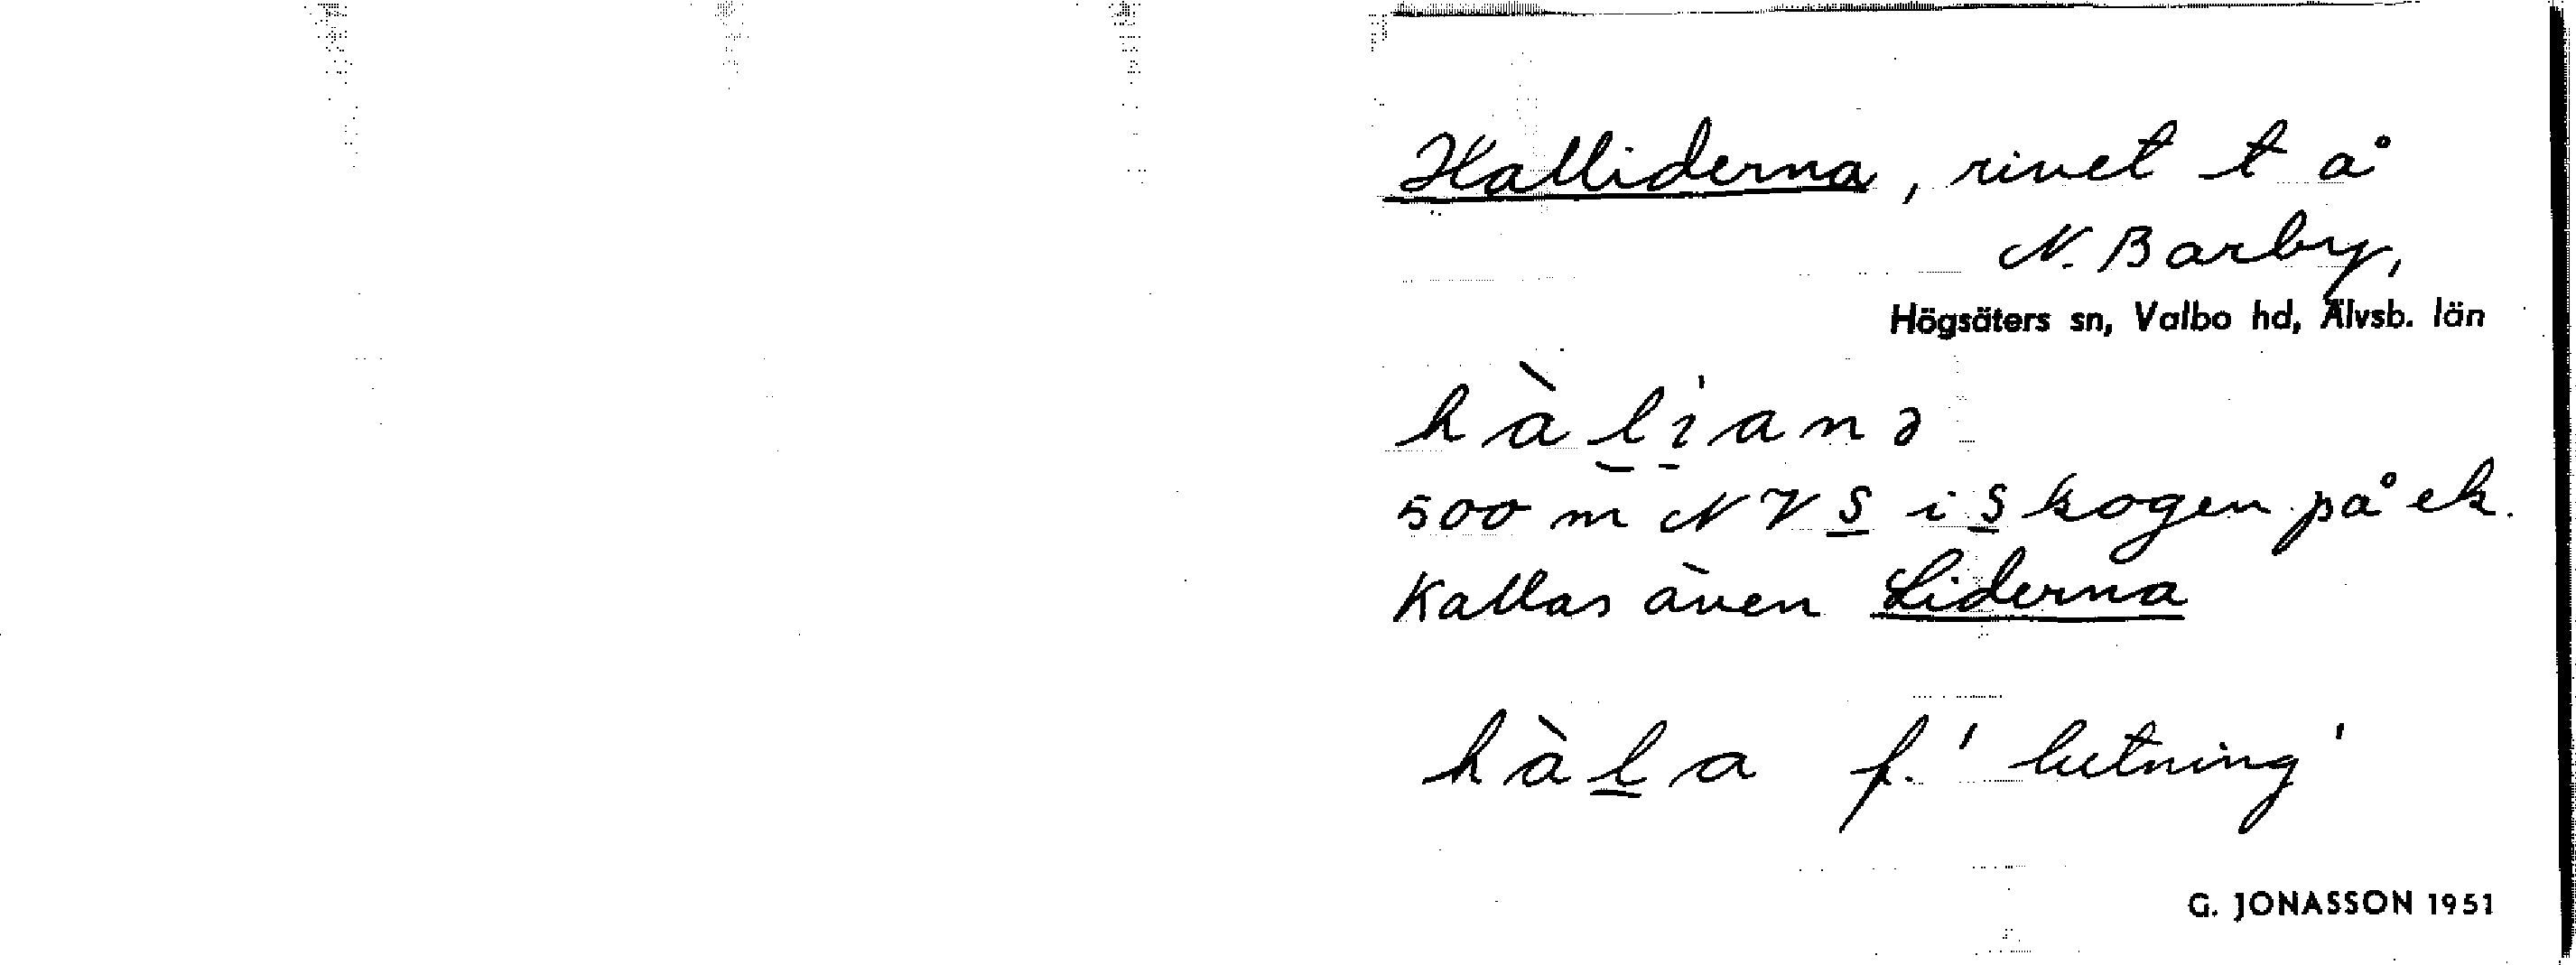 Halliderna, rivet t å
N. Barby,
Högsäters sn, Valbo hd, Älvsb. län
hàlianə
500 m NVS i Skogen på ek.
Kallas även Liderna
hàla f. 'lutning'
G. JONASSON 1951